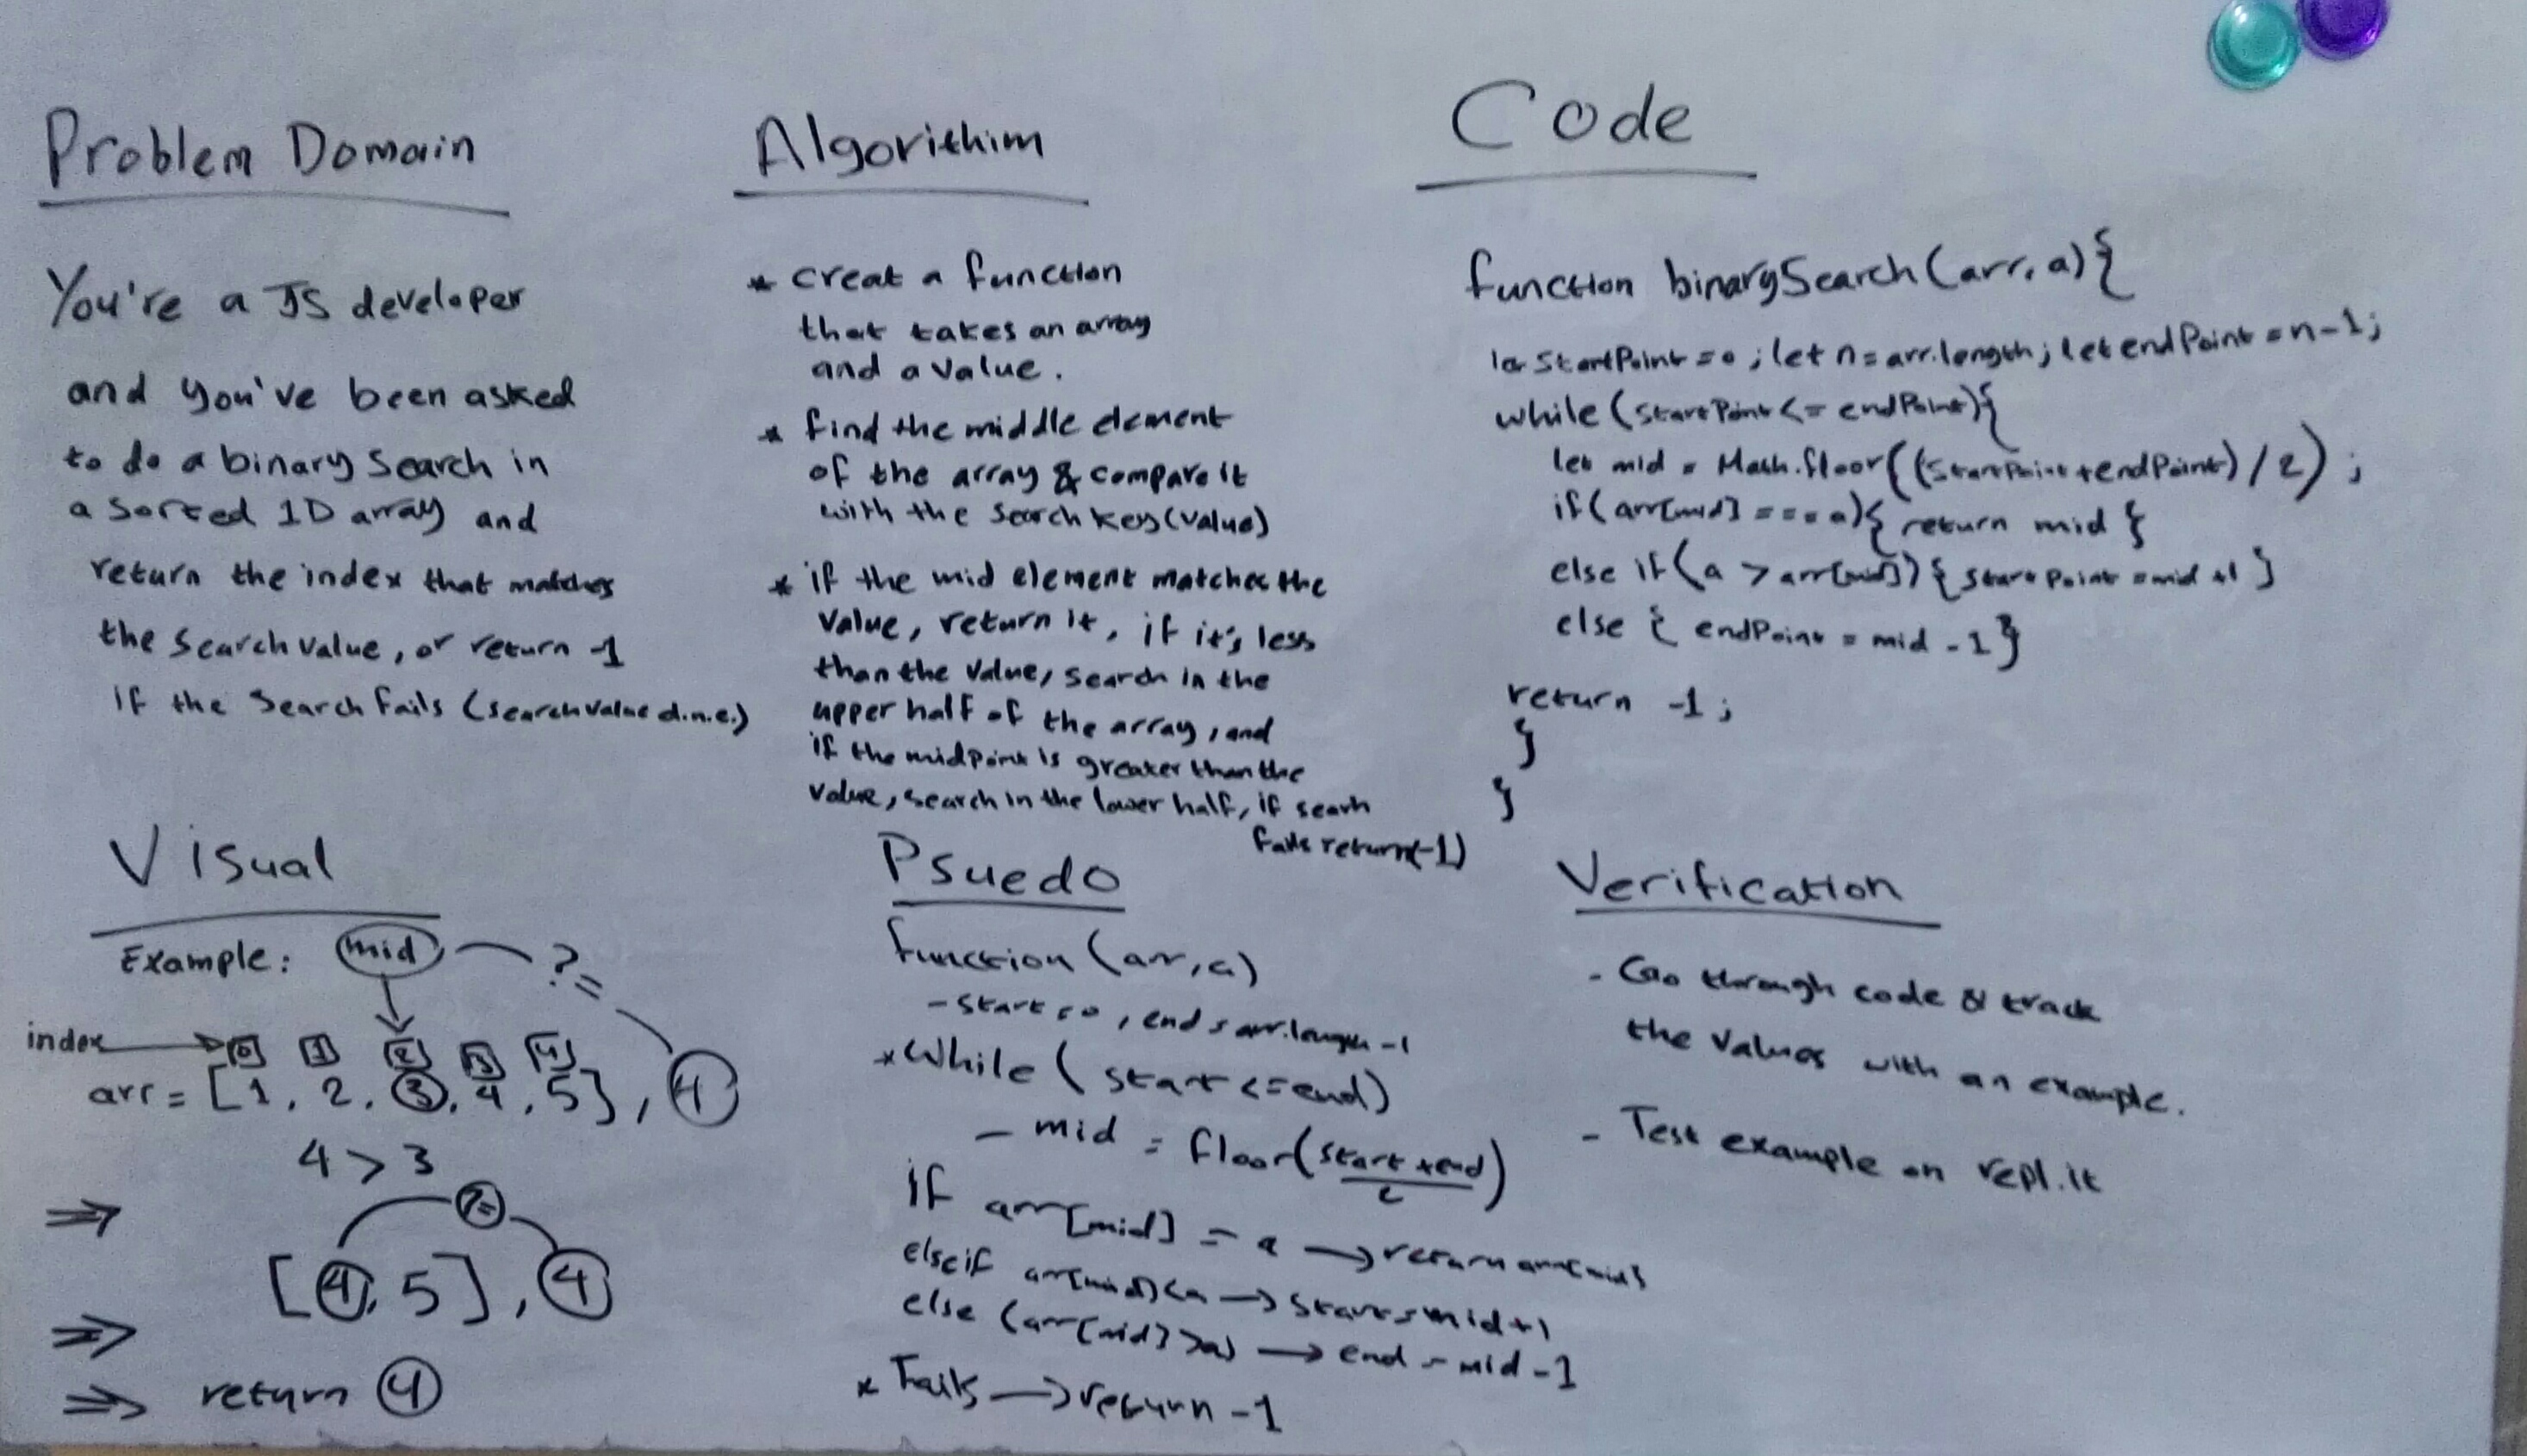 Problem Domain
You're a JS developer
and you've been asked
to do a binary search in
a sorted 1D array and
return the index that matches
the search value, or return -1
if the search fails (search value d.n.e.)
Algorithim
* creat a function
that takes an array
and a value.
* find the middle element
of the array & compare it
with the search key(value)
* if the mid element matches the
value, return it, if it's less
than the value, search in the
upper half of the array, and
if the midpoint is greater than the
value, search in the lower half, if searh
fails return(-1)
Code
function binarySearch(arr, a){
let startPoint = 0; let n = arr.length; let endPoint = n-1;
while (startPoint <= endPoint){
let mid = Math.floor((startPoint + endPoint) / 2);
if(arr[mid] === a){ return mid {
else if(a > arr[mid]){ startPoint = mid +1 }
else { endPoint = mid - 1}
return -1;
}
}
Visual
Example: mid ?=
index 0 1 2 3 4
arr = [1, 2, 3, 4, 5], 4
4 > 3
⇒ ?=
[4, 5], 4
⇒
⇒ return 4
Psuedo
function (arr, a)
- start = 0, end = arr.length -1
* While (start <= end)
- mid = floor(start + end / 2)
if arr[mid] = a → return arr[mid]
else if arr[mid] < a → start = mid + 1
else (arr[mid] > a) → end = mid - 1
* Fails → return -1
Verification
- Go through code & track
the values with an example.
- Test example on repl.it